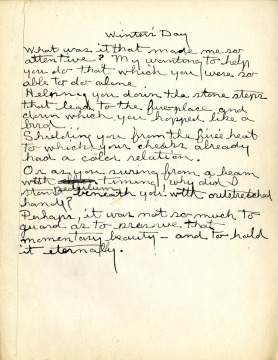 Winter Day
What was it that made me so
attentive? My wanting to help
you do that which you were so
able to do alone.
Helping you down the stone steps
that lead to the fireplace and
down which you hopped like a
bird.
Shielding you from the fire's heat
to which your cheeks already
had a color relation.
Or as you swung from a beam
with timing, why did I
stand beneath you with outstretched
hands?
Perhaps, it was not so much to
guard as to preserve that
momentary beauty – and to hold
it eternally.